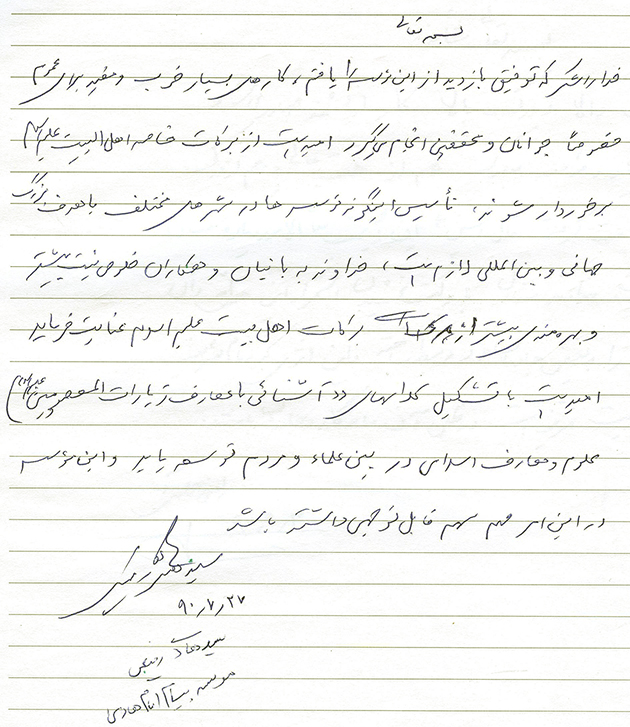 بسمه تعالی
خدا را شکر که توفیق بازدید از این مؤسسه را یافتم، کارهای بسیار خوب و مفید برای عموم
خصوصاً جوانان و محققین انجام می‌گیرد امید است از برکات خاصه اهل البیت علیهم السلام
برخوردار شوند، تأسیس اینگونه مؤسسه ها در شهرهای مختلف با هدف بزرگ
جهانی و بین المللی لازم است، خداوند به بانیان و همکاران خلوص نیت بیشتر
و بهره‌مندی بیشتر از برکات اهل بیت علیهم السلام عنایت فرماید
امید است با تشکیل آشنائی با معارف زیارات المعصومین (علیهم السلام)
علوم و معارف اسلامی در بین علماء و مردم توسعه یابد و این مؤسسه
در این امر مهم سهم قابل توجهی داشته باشد
سید
۹۰٫۷٫۲۷
سید هادی رفیعی
موسسه پیام امام هادی